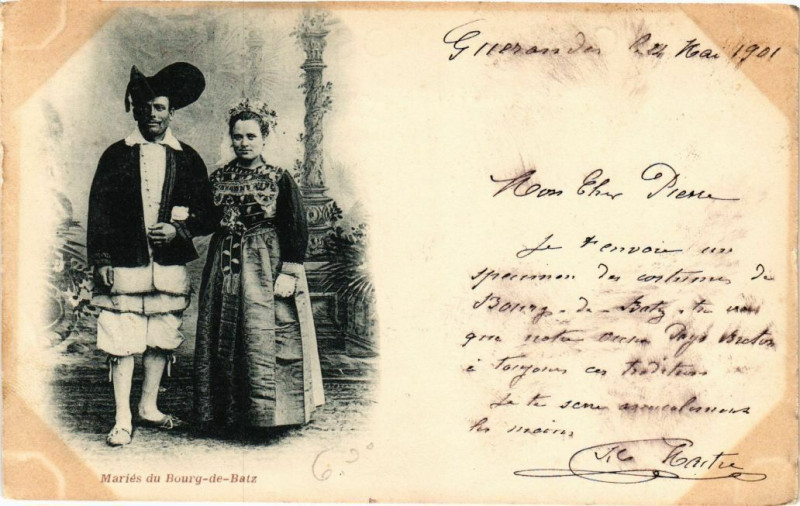 Guérande, le 24 Mai 1901
Mon Cher Pierre
Je t'envoie un
specimen des costumes de
Bourg-de-Batz. tu vois
que notre vieux Pays Breton
à toujours ces traditions
Je te serre amicalement
les mains
Mariés du Bourg-de-Batz
6.50